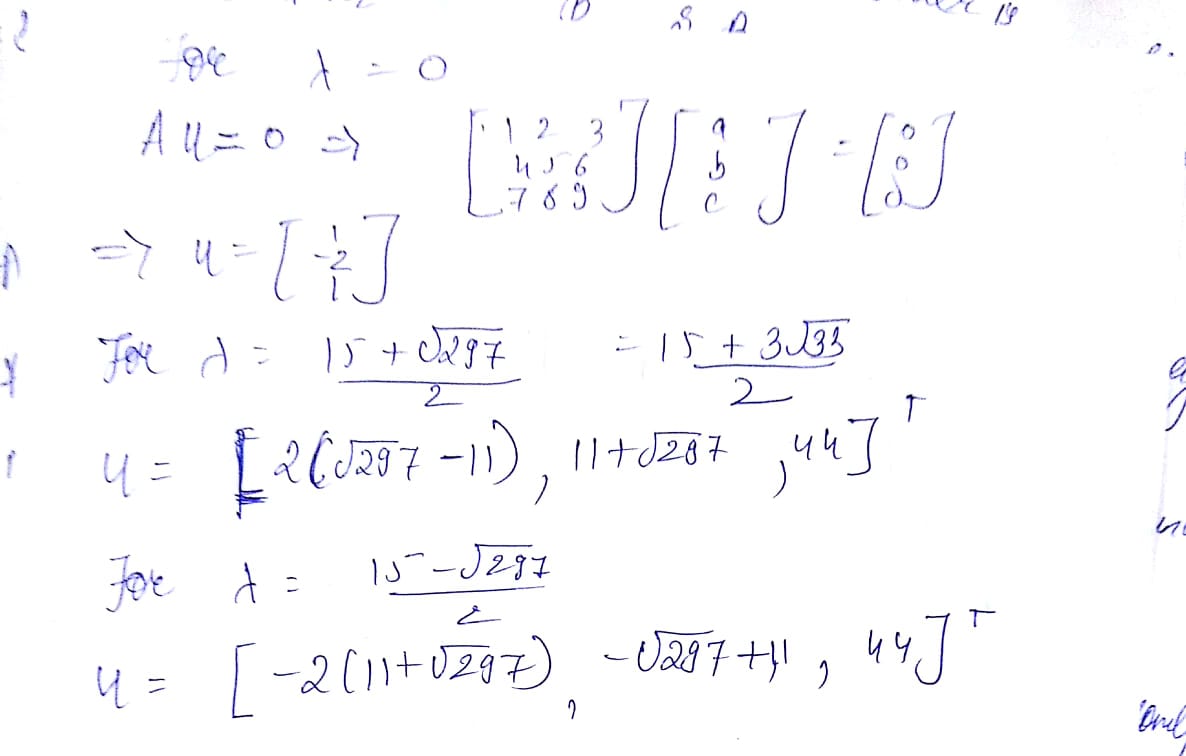 For λ = 0
Au = 0 ⇒ [1 2 3; 4 5 6; 7 8 9] [a; b; c] = [0; 0; 0]
⇒ u = [1; -2; 1]
For λ = (15 + √297)/2 = (15 + 3√33)/2
u = [2(√297 - 11), 11 + √297, 44]ᵀ
For λ = (15 - √297)/2
u = [-2(11 + √297), -√297 + 11, 44]ᵀ